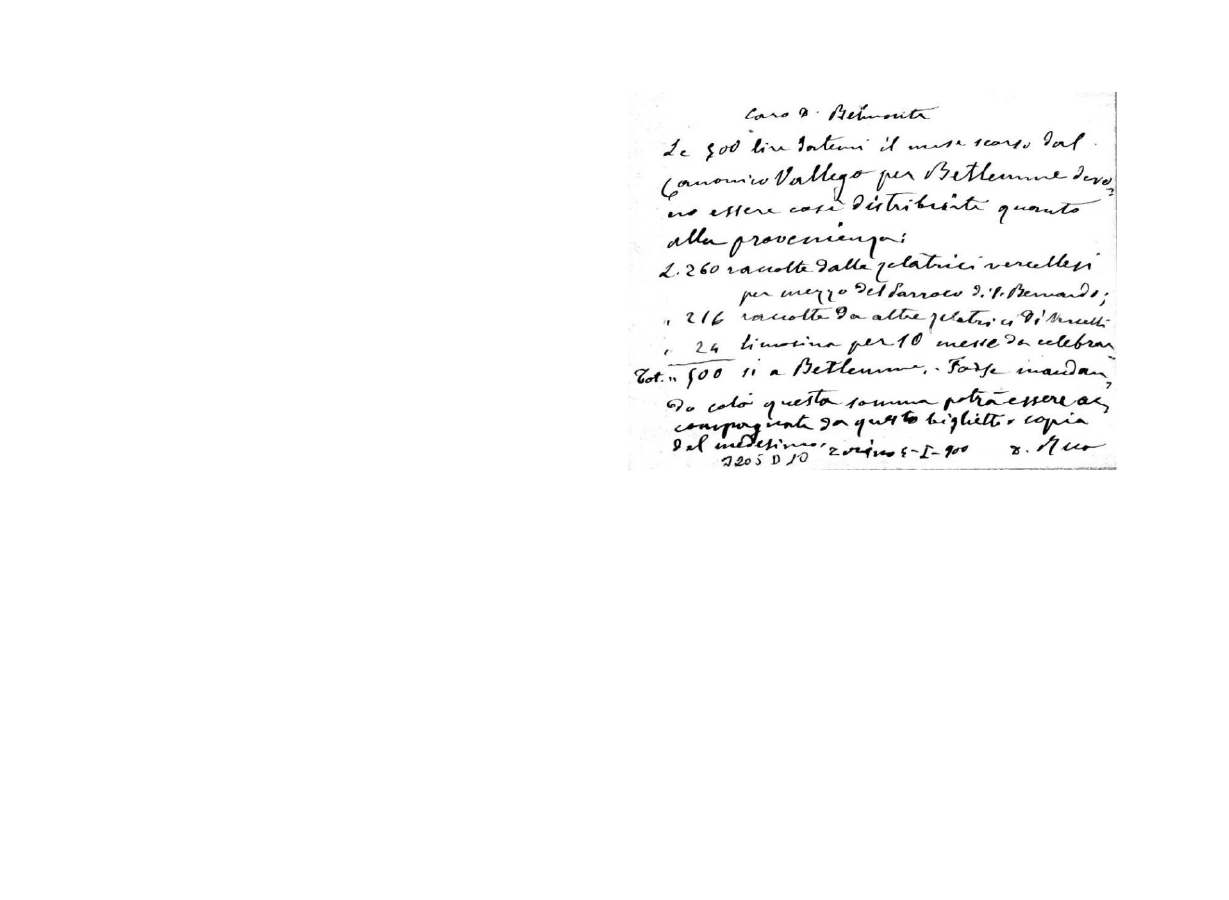 Caro D. Belmonte
Le 500 lire datemi il mese scorso dal
Canonico Vallego per Betlemme devo-
no essere così distribuite quanto
alla provenienza:
L. 260 raccolte dalle zelatrici vercellesi
per mezzo del Parroco di S. Bernardo;
" 216 raccolte da altre zelatrici di Vercelli
" 24 limosina per 10 messe da celebrar-
Tot. " 500 si a Betlemme. - Forse mandan-
do colà questa somma potrà essere ac-
compagnata da questo biglietto o copia
del medesimo. Torino 5-I-900 D. Rua